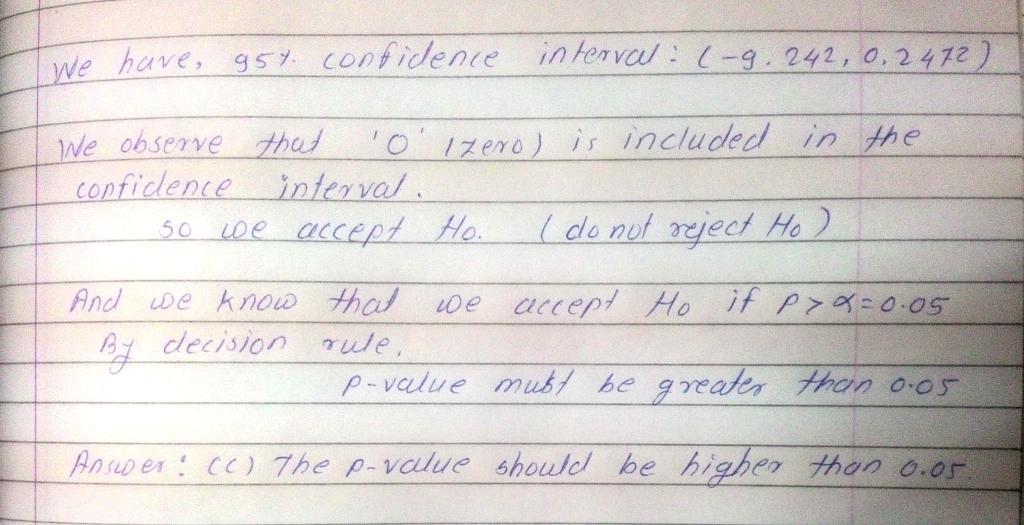 We have, 95%. confidence interval: (-9.242, 0.2472)
We observe that '0' (zero) is included in the
confidence interval.
so we accept Ho. (do not reject Ho)
And we know that we accept Ho if P > α = 0.05
By decision rule,
p-value must be greater than 0.05
Answer: (c) The p-value should be higher than 0.05.